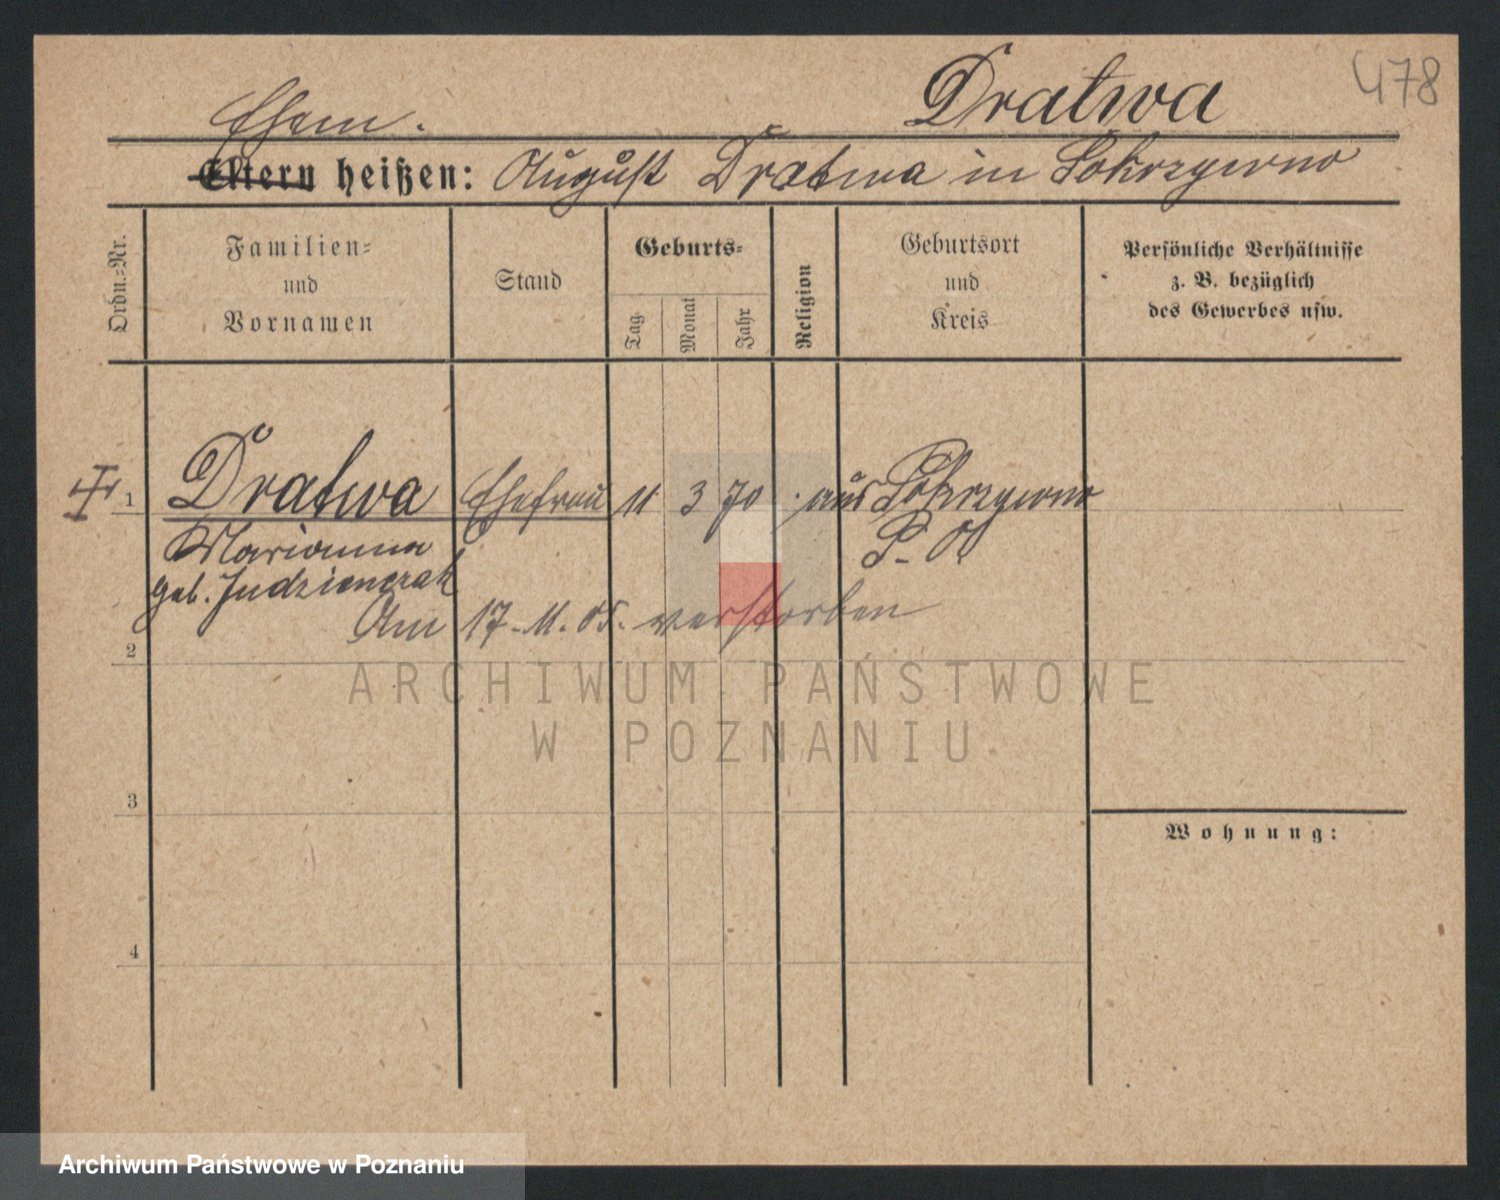 478
Dratwa
Ehem.
Eltern heißen: August Dratwa in Pokrzywno
Ordn.=Nr.
Familien=
und
Vornamen
Stand
Geburts=
Tag
Monat
Jahr
Religion
Geburtsort
und
Kreis
Persönliche Verhältnisse
z. B. bezüglich
des Gewerbes usw.
1 Dratwa Ehefrau 11 3 70 aus Pokrzywno
Marianna P. O
geb. Judzienczak
Am 17-11.05. verstorben
2
ARCHIWUM PAŃSTWOWE
W POZNANIU
3
Wohnung:
4
Archiwum Państwowe w Poznaniu